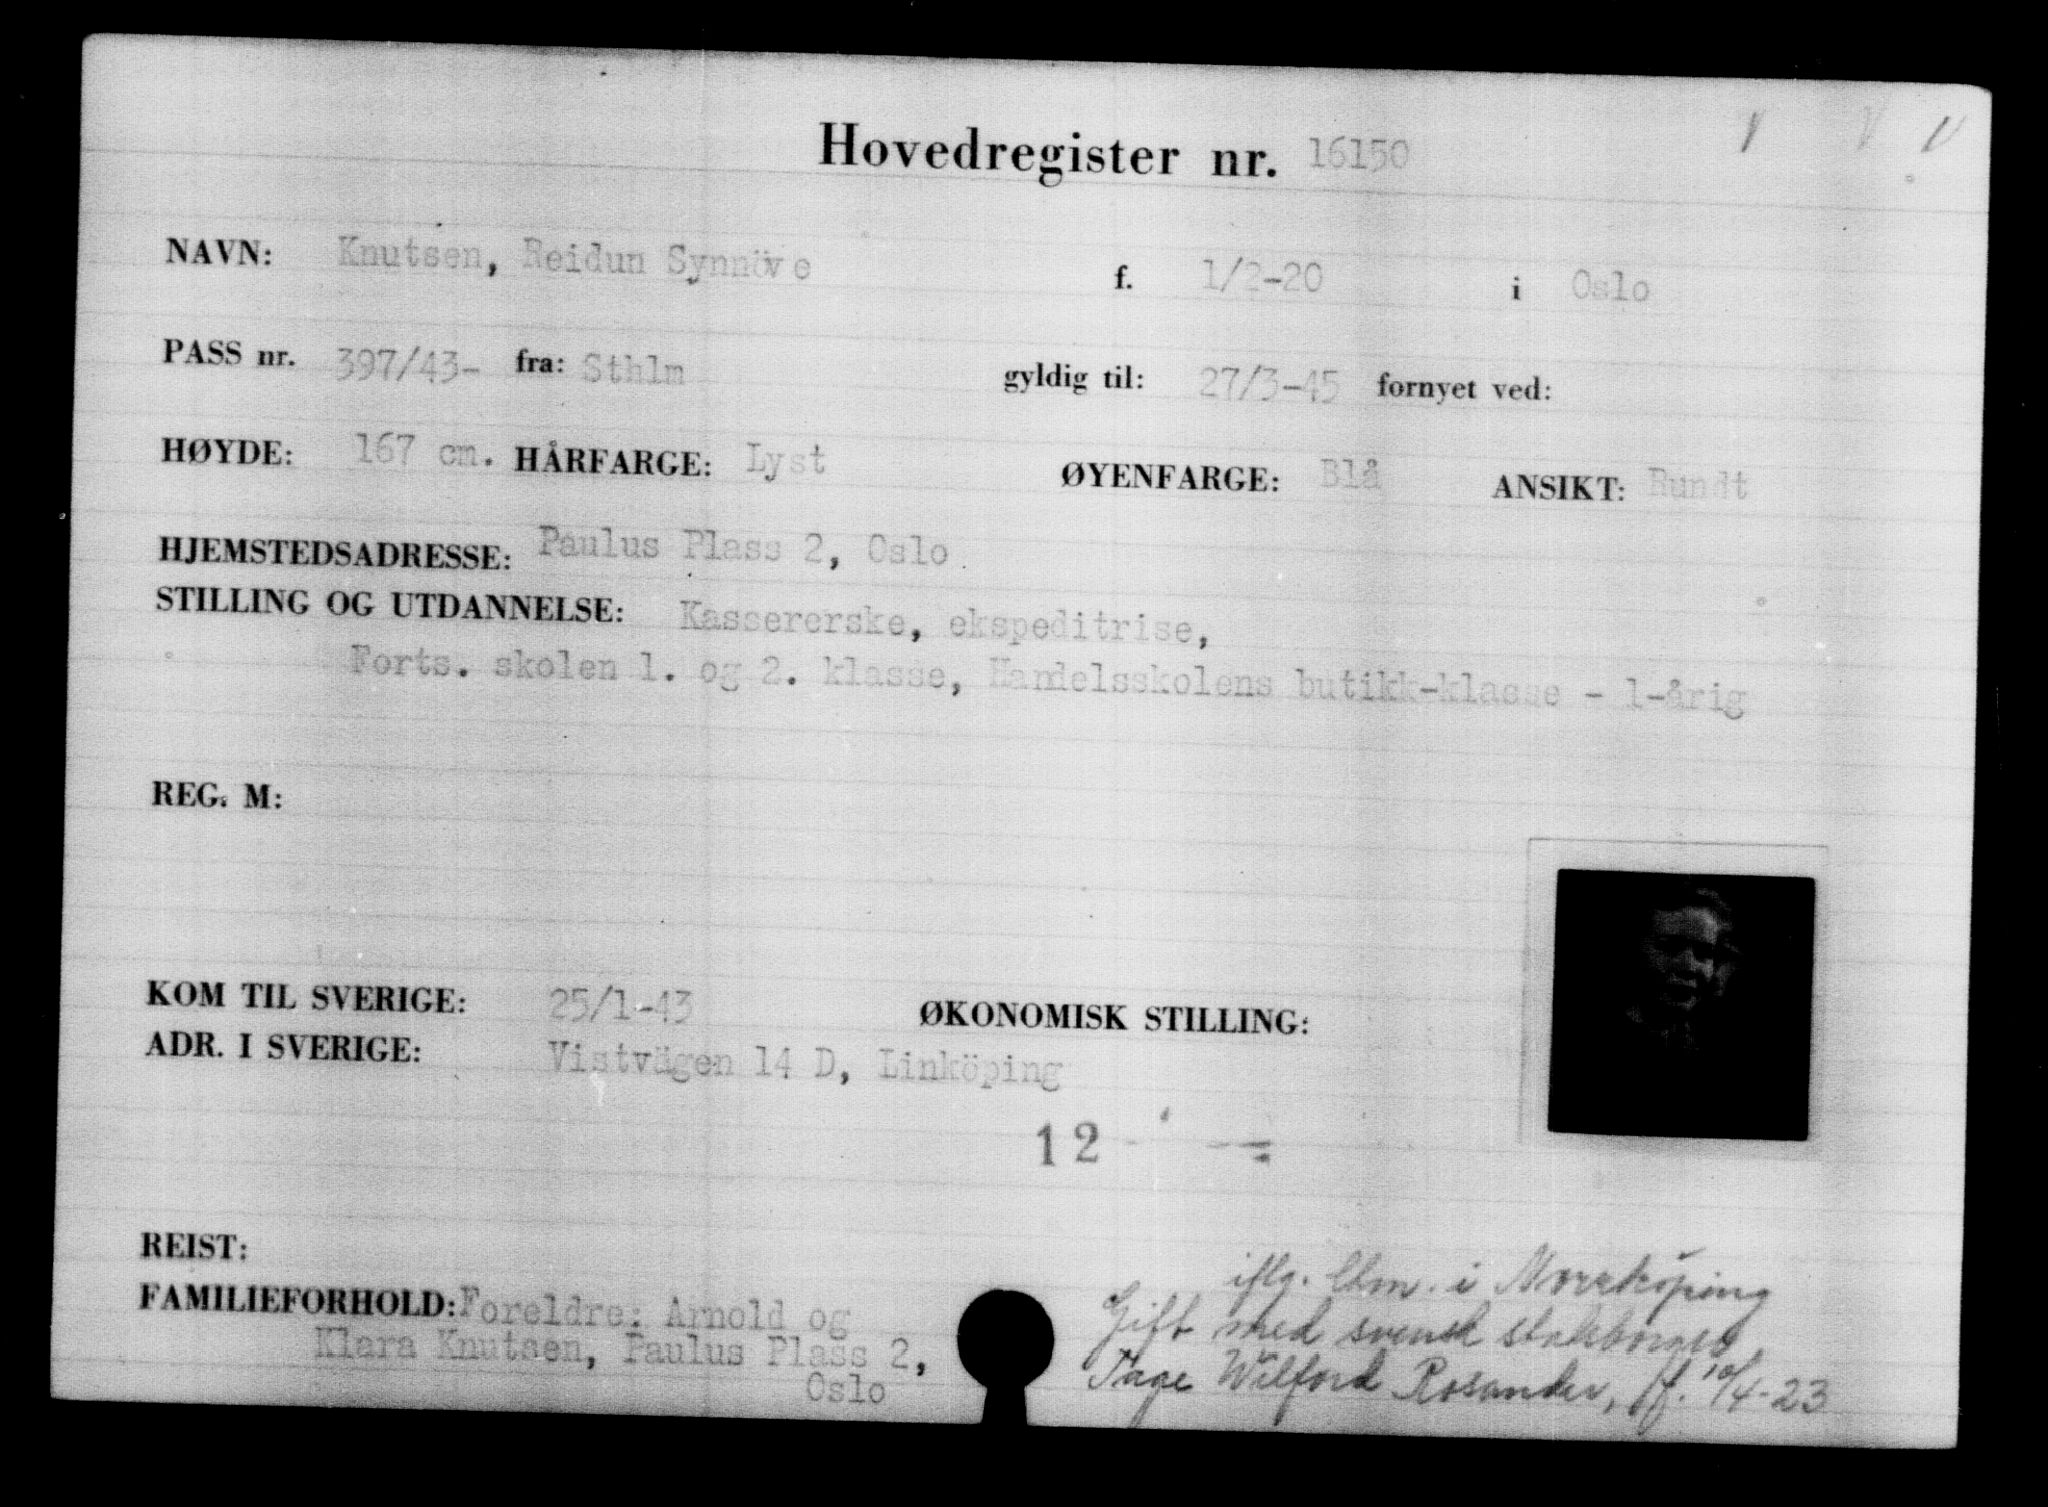 Hovedregister nr. 16150
NAVN: Knutsen, Reidun Synnöve f. 1/2-20 i Oslo
PASS nr. 397/43- fra: Sthlm gyldig til: 27/3-45 fornyet ved:
HØYDE: 167 cm. HÅRFARGE: Lyst ØYENFARGE: Blå ANSIKT: Rundt
HJEMSTEDSADRESSE: Paulus Plass 2, Oslo
STILLING OG UTDANNELSE: Kassererske, ekspeditrise,
Forts. skolen 1. og 2. klasse, Handelsskolens butikk-klasse - 1-årig
REG. M:
KOM TIL SVERIGE: 25/1-43 ØKONOMISK STILLING:
ADR. I SVERIGE: Vistvägen 14 D, Linköping
12
REIST:
iflg. i Norrköping
FAMILIEFORHOLD: Foreldre: Arnold og
Klara Knutsen, Paulus Plass 2,
Oslo
Gift med svensk statsborger
Tage Wilford Rosander, f. 10/4-23